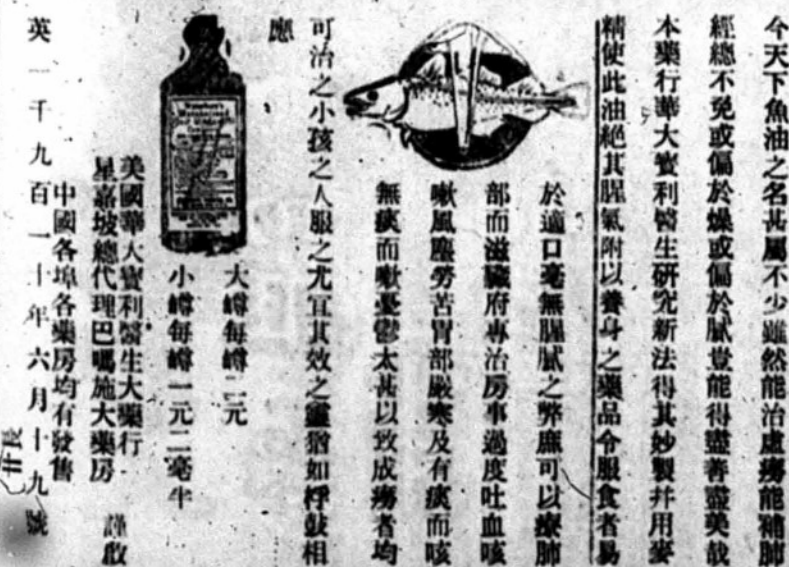 今天下魚油之名甚屬不少雖然能治虛癆能補肺
經總不免或偏於燥或偏於膩豈能得盡善盡美哉
本藥行華大寶利醫生研究新法得其妙製幷用麥
精使此油絕其腥氣附以養身之藥品令服食者易
於適口毫無腥膩之弊庶可以療肺
部而滋臟府專治房事過度吐血咳
嗽風塵勞苦冒部嚴寒及有痰而咳
無痰而嗽憂鬱太甚以致成癆者均
可治之小孩之人服之尤宜其效之靈猶如桴鼓相
應
大罇每罇二元
小罇每罇一元二毫半
美國華大寶利醫生大藥行
星嘉坡總代理巴嗎施大藥房
謹啟
中國各埠各藥房均有發售
英一千九百一十年六月十九號